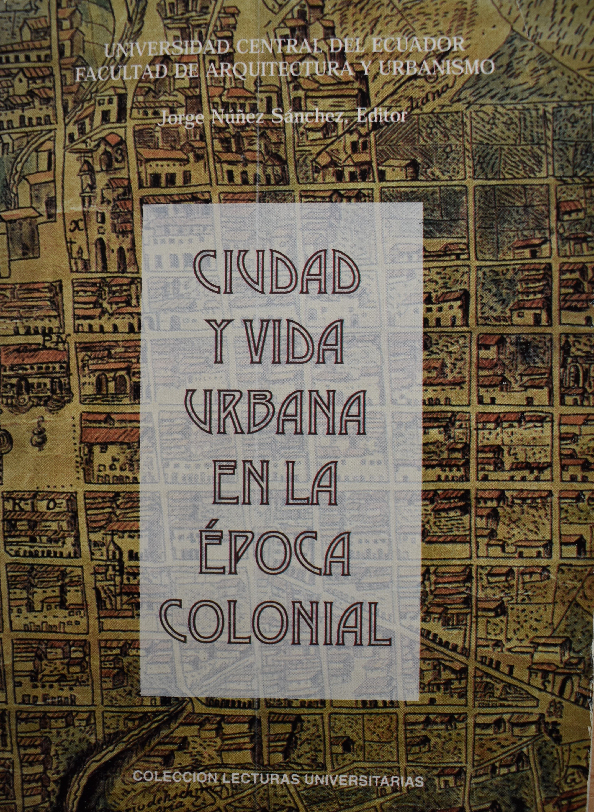 UNIVERSIDAD CENTRAL DEL ECUADOR
FACULTAD DE ARQUITECTURA Y URBANISMO
Jorge Núñez Sánchez, Editor
CIUDAD
Y VIDA
URBANA
EN LA
ÉPOCA
COLONIAL
COLECCION LECTURAS UNIVERSITARIAS